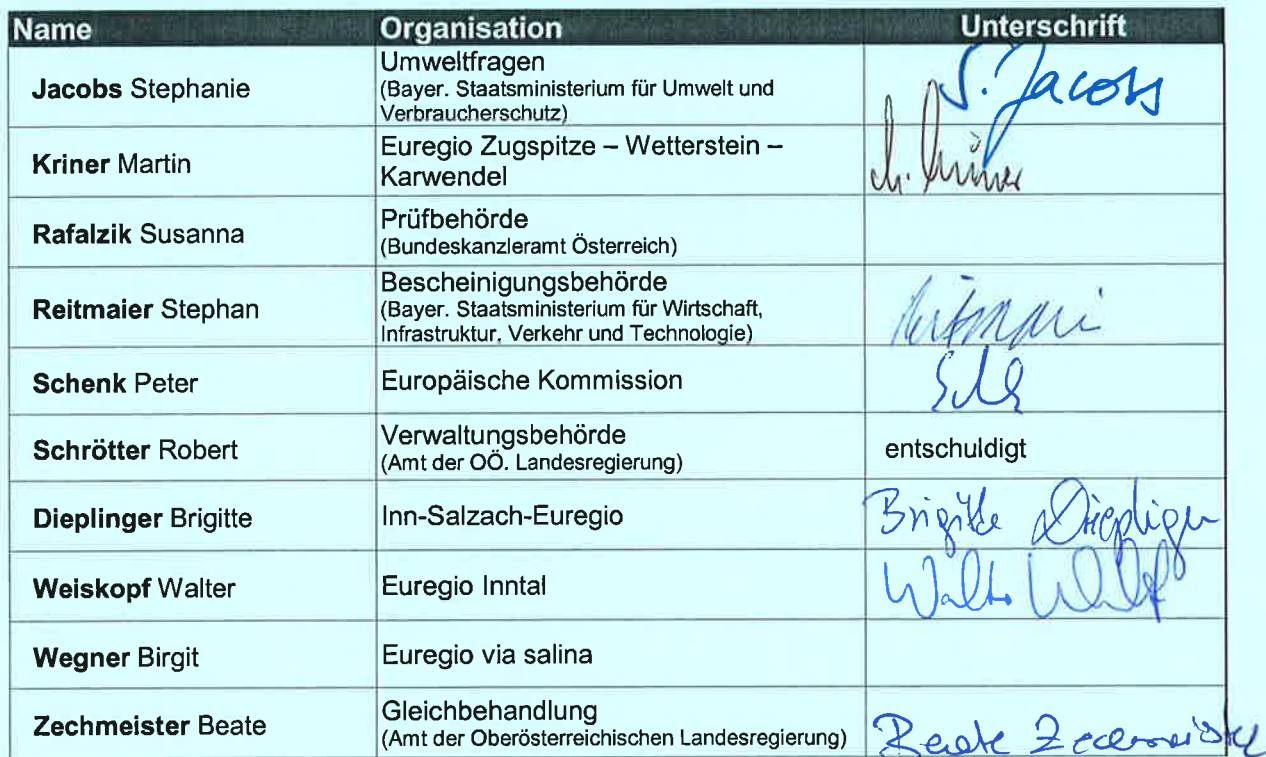 Name Organisation Unterschrift
Jacobs Stephanie
Umweltfragen
(Bayer. Staatsministerium für Umwelt und
Verbraucherschutz)
S. Jacobs
Kriner Martin
Euregio Zugspitze – Wetterstein –
Karwendel
M. Kriner
Rafalzik Susanna
Prüfbehörde
(Bundeskanzleramt Österreich)
Reitmaier Stephan
Bescheinigungsbehörde
(Bayer. Staatsministerium für Wirtschaft,
Infrastruktur, Verkehr und Technologie)
Schenk Peter
Europäische Kommission
Schrötter Robert
Verwaltungsbehörde
(Amt der OÖ. Landesregierung)
entschuldigt
Dieplinger Brigitte
Inn-Salzach-Euregio
Brigitte Dieplinger
Weiskopf Walter
Euregio Inntal
Walter
Wegner Birgit
Euregio via salina
Zechmeister Beate
Gleichbehandlung
(Amt der Oberösterreichischen Landesregierung)
Beate Zechmeister